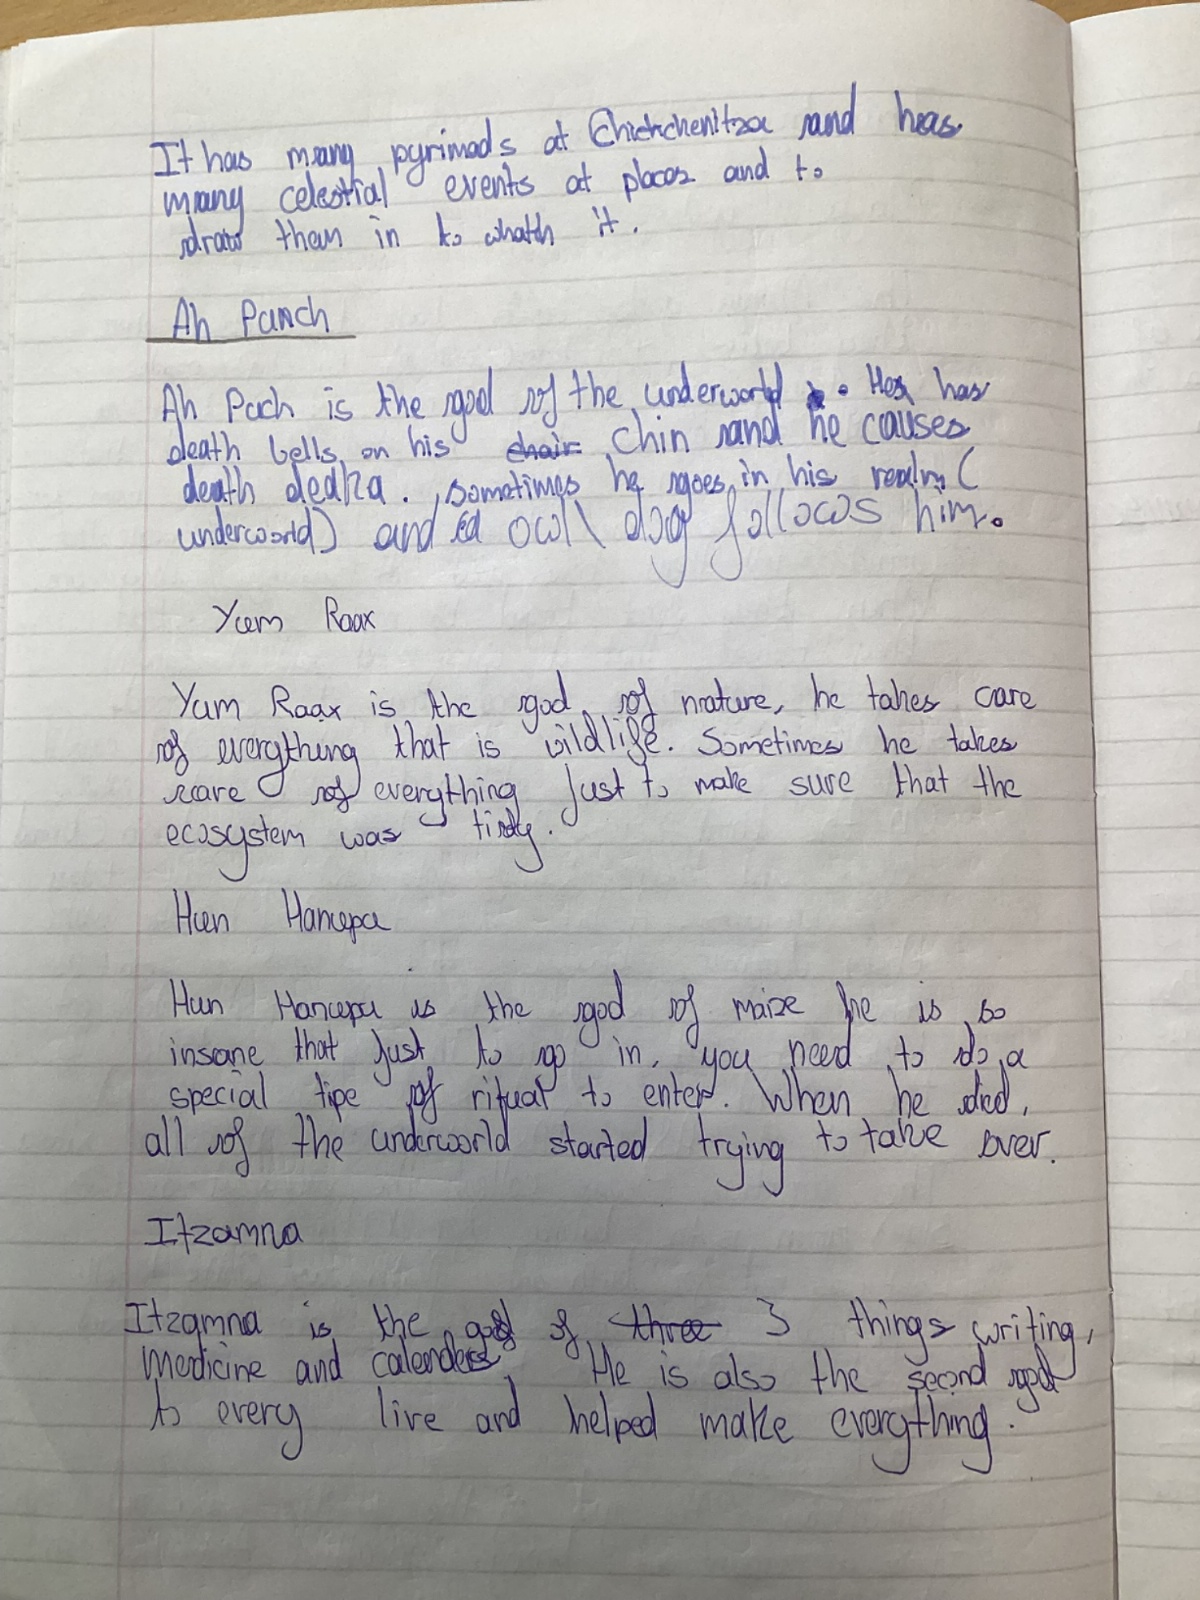 It has many pyrimads at Chichchenitza and has
many celestial events at places and to
draw them in to whatch it.
Ah Panch
Ah Pach is the god of the underworld . He has
death bells on his chair chin and he causes
death deaka. sometimes he goes in his realm (
underworld) and a owl dog follows him.
Yum Raax
Yum Raax is the god of nature, he takes care
of everything that is wildlife. Sometimes he takes
care of everything just to make sure that the
ecosystem was tidy.
Hun Hanupu
Hun Hanupu is the god of maize he is so
insane that just to go in, you need to do a
special tipe of ritual to enter. When he died,
all of the underworld started trying to take over.
Itzamna
Itzamna is the god of three 3 things writing,
medicine and calenders, He is also the second god
to every live and helped make everything.